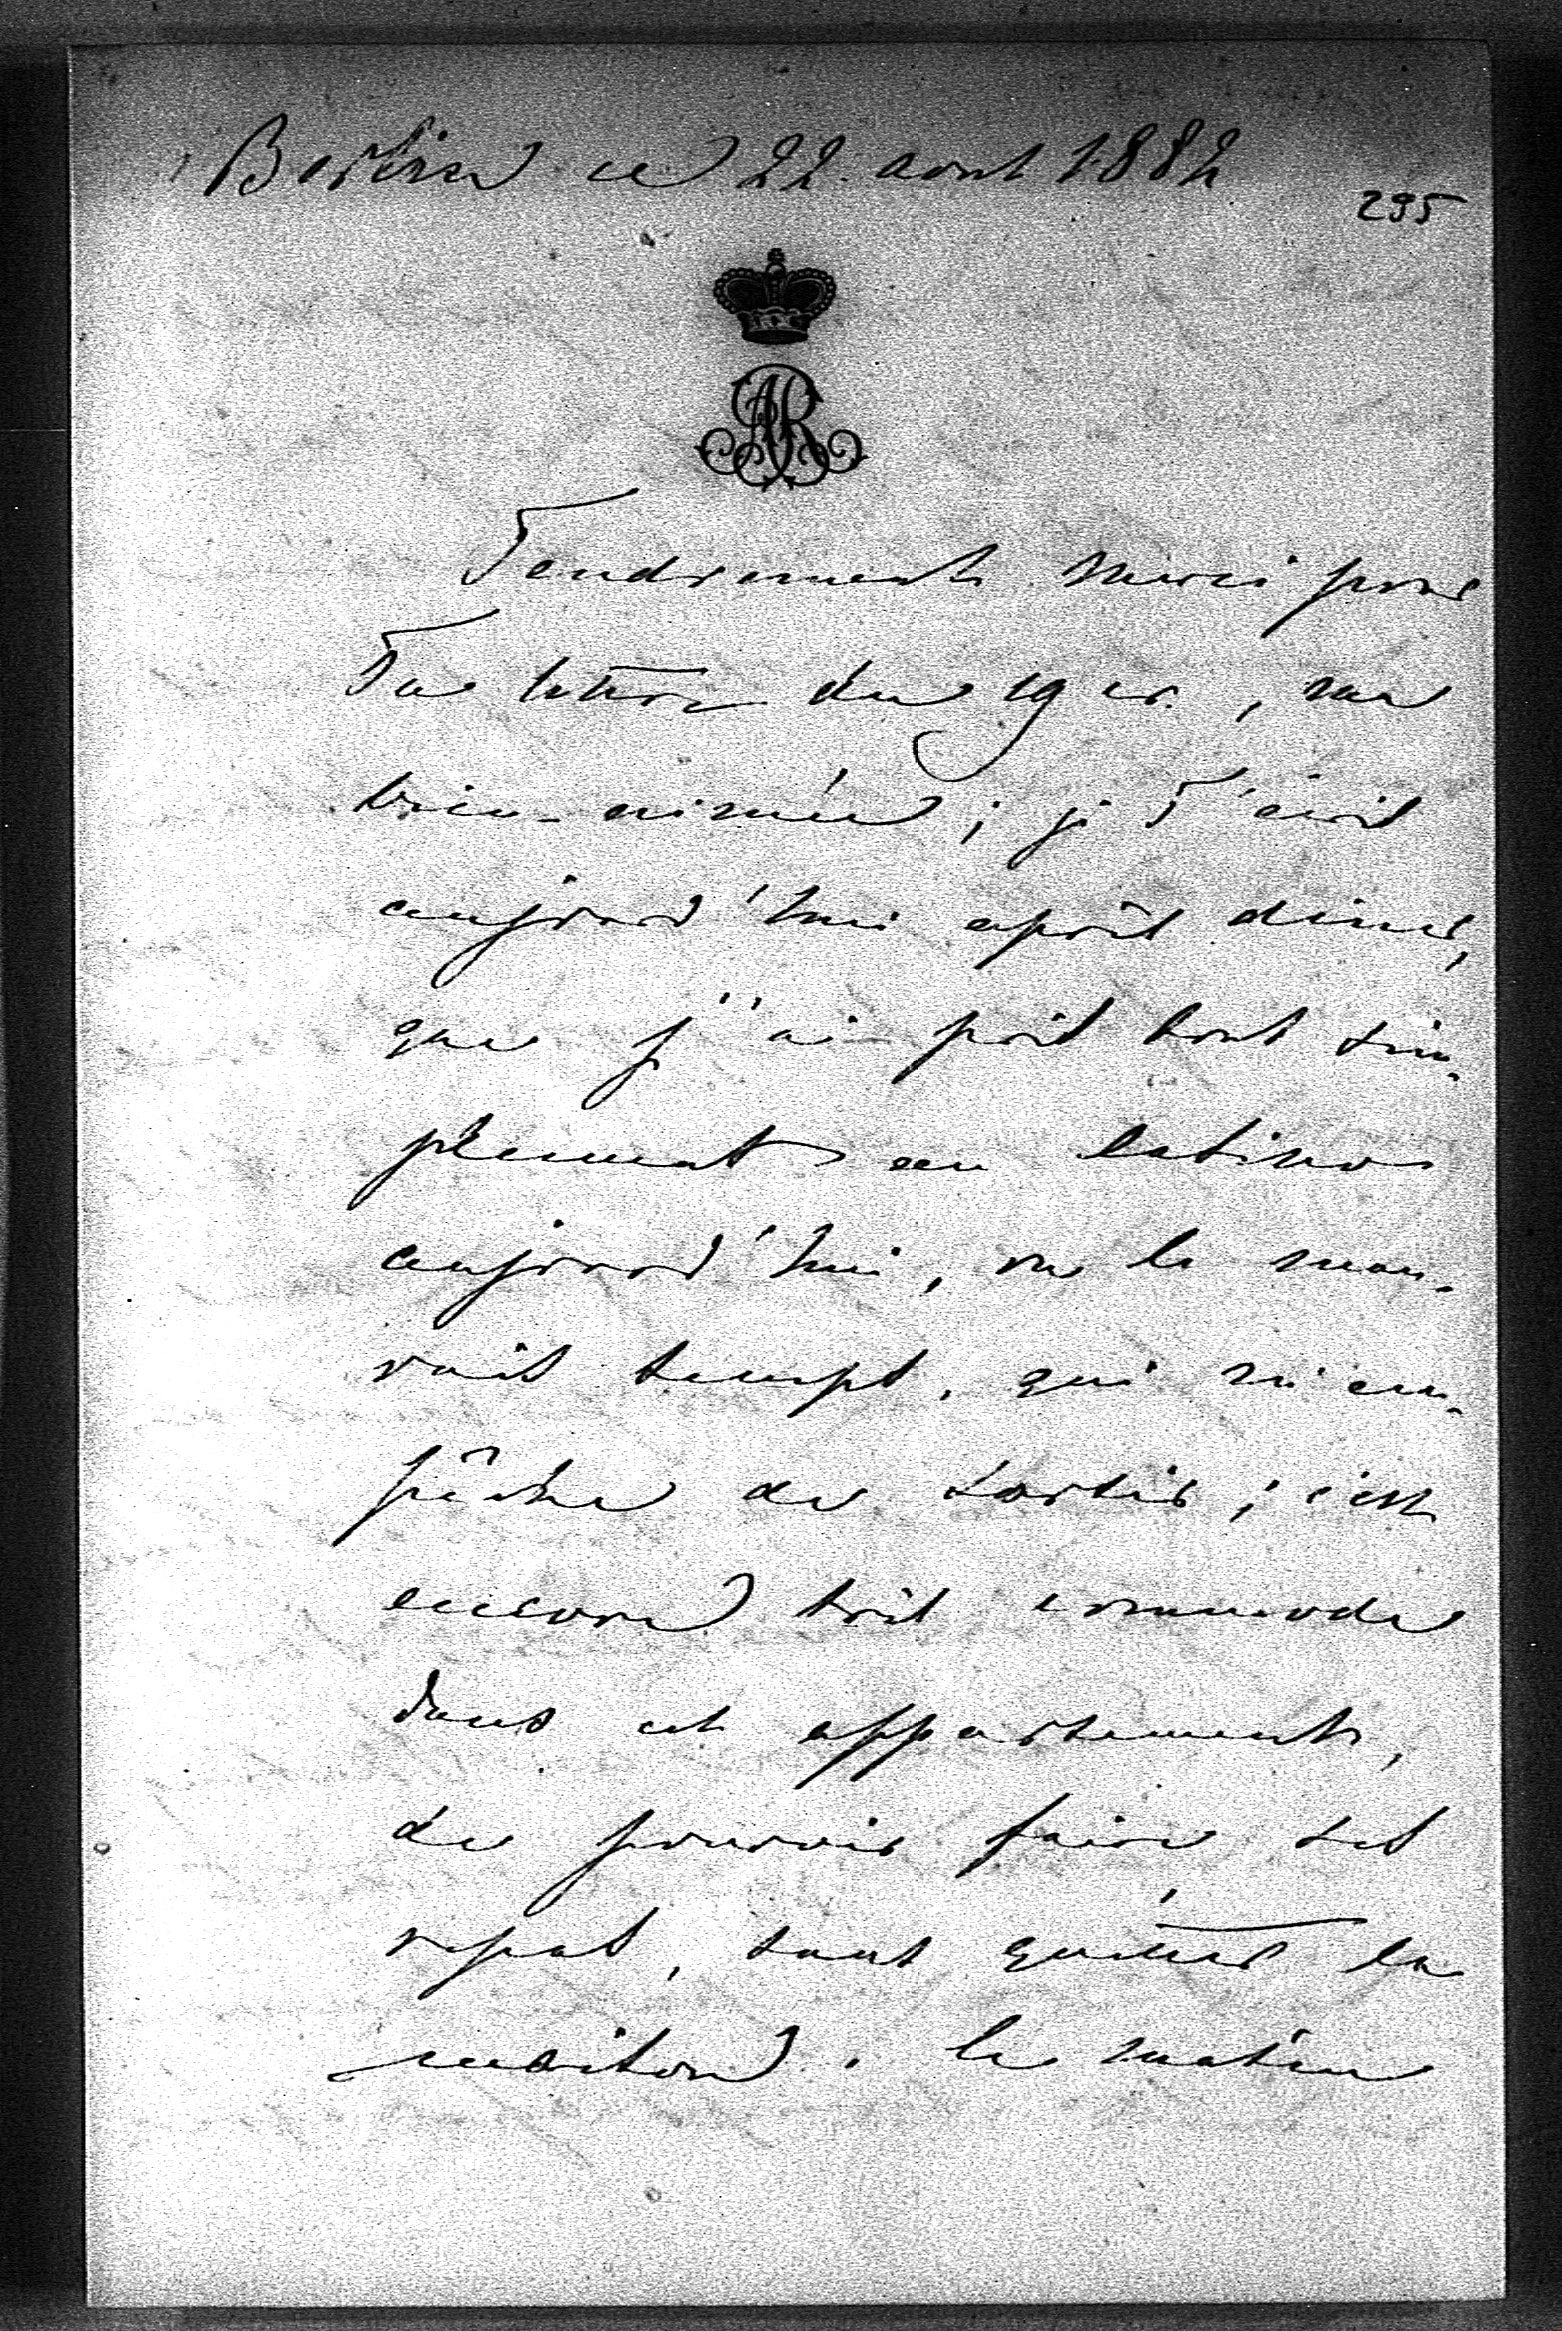 Berlin ce 22. aout 1882
295
AR
Tendrement merci pour
Ta lettre du 19 cr., ma
bien-aimée ; je T'écris
aujourd'hui après diner,
que j'ai pris tout sim-
plement au
aujourd'hui, vu le mau-
vais temps, qui m'em-
pêche de sortir ; c'est
encore très commode
dans cet appartement,
de pouvoir faire ses
repas, sans quitter la
maison. Le matin